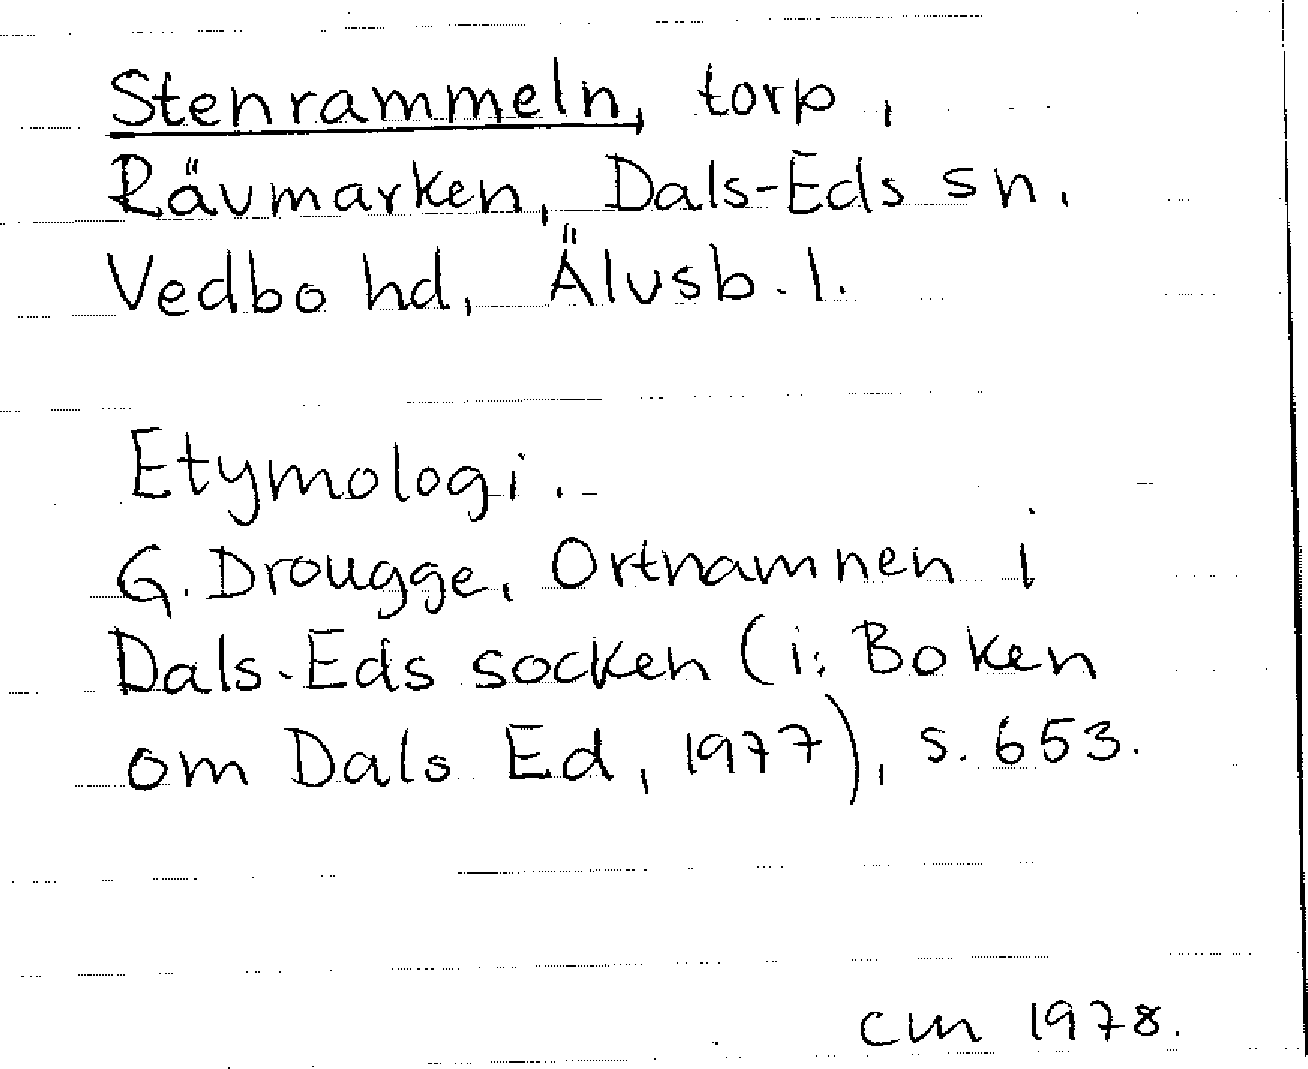 Stenrammeln, torp,
Rävmarken, Dals-Eds sn.
Vedbo hd, Älvsb. l.
Etymologi.-
G. Drougge, Ortnamnen i
Dals-Eds socken (i: Boken
om Dals Ed, 1977), s. 653.
cm 1978.